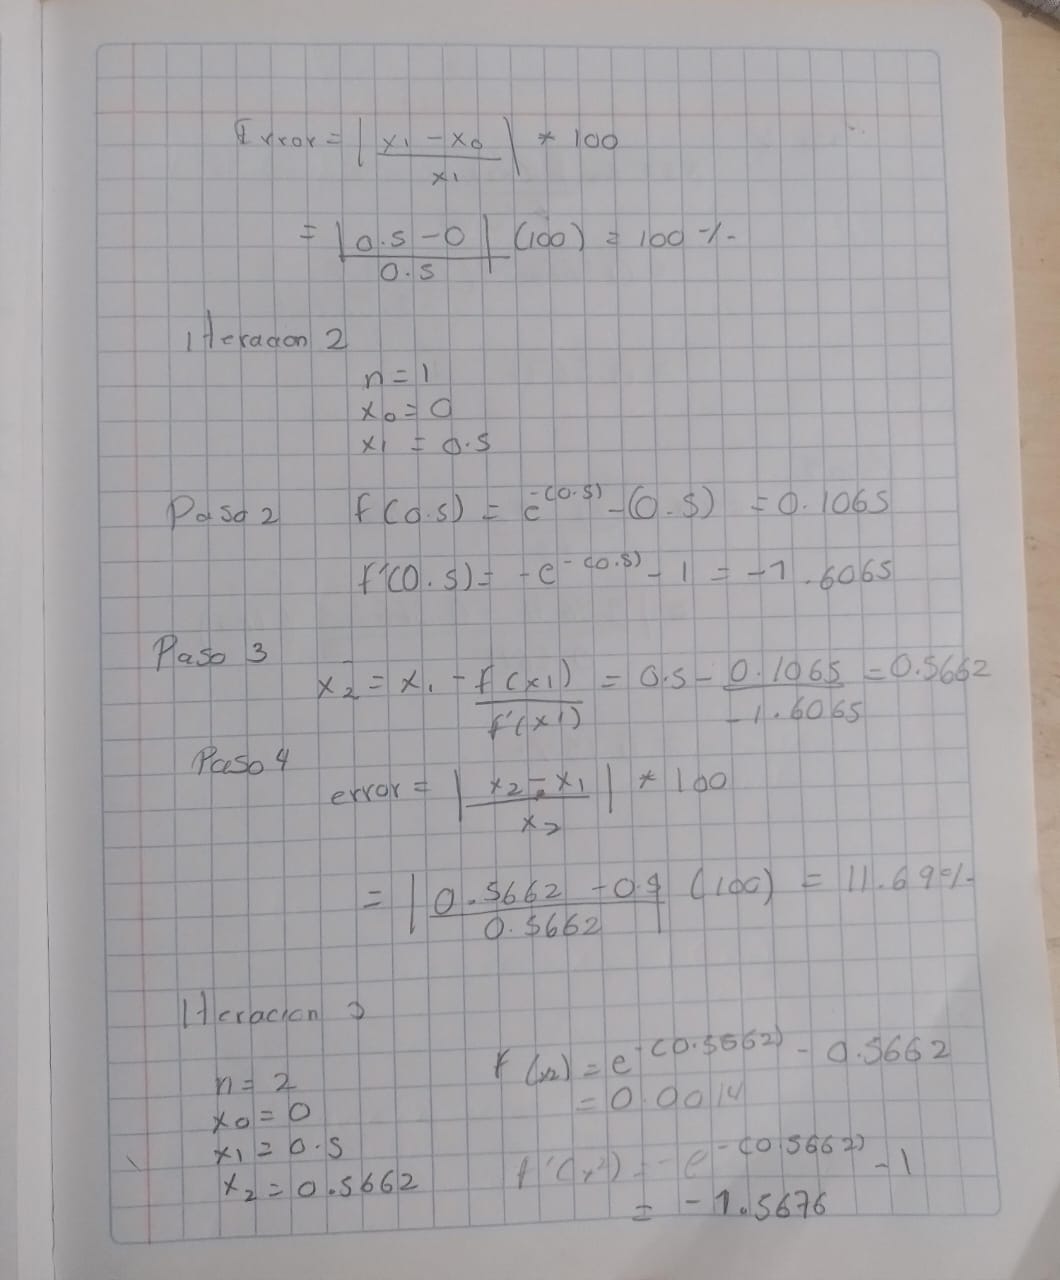 Error = | x1 - x0 / x1 | * 100
= | 0.5 - 0 / 0.5 | (100) = 100 %
Iteracion 2
n = 1
x0 = 0
x1 = 0.5
Paso 2 f(0.5) = e^-(0.5) - (0.5) = 0.1065
f'(0.5) = -e^-(0.5) - 1 = -1.6065
Paso 3
x2 = x1 - f(x1) / f'(x1) = 0.5 - 0.1065 / -1.6065 = 0.5662
Paso 4
error = | x2 - x1 / x2 | * 100
= | 0.5662 - 0.5 / 0.5662 | (100) = 11.69%
Iteracion 3
n = 2
x0 = 0
x1 = 0.5
x2 = 0.5662
f(x2) = e^-(0.5662) - 0.5662
= 0.0014
f'(x2) = -e^-(0.5662) - 1
= -1.5676